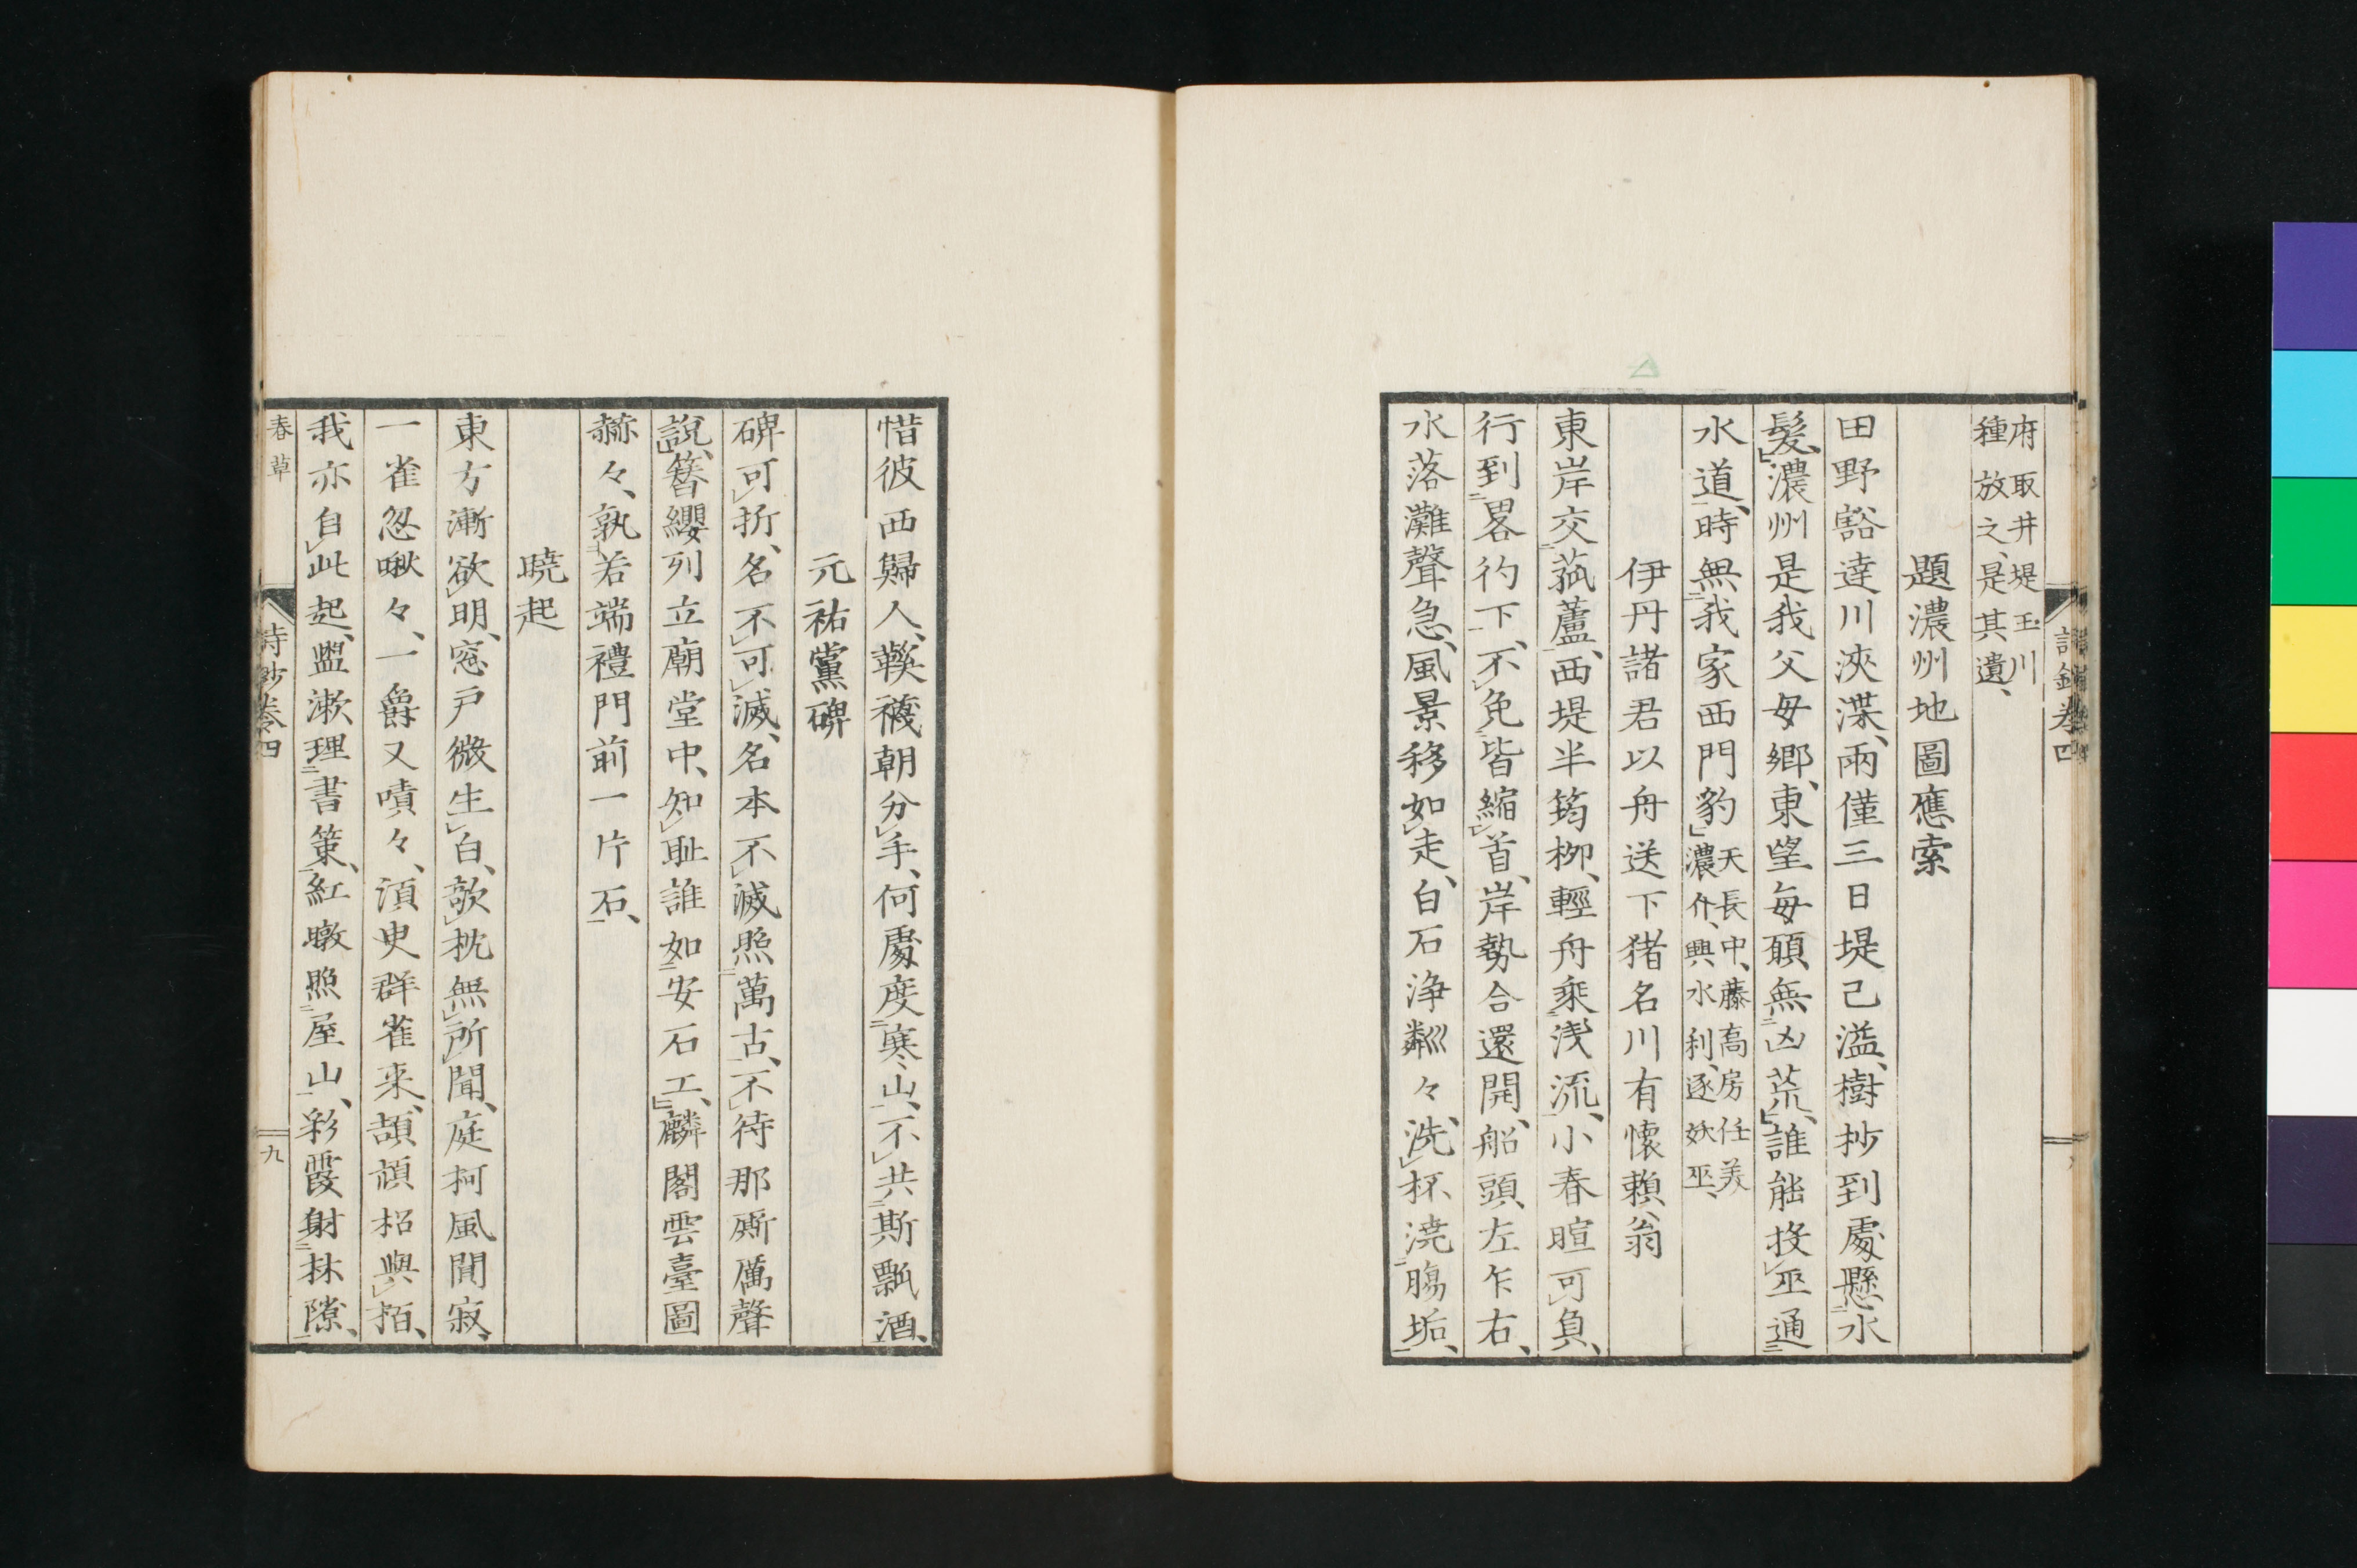 詩鈔卷四
府取井堤玉川
種放之、是其遺、
題濃州地圖應索
田野豁達川浹渫、兩僅三日堤已溢、樹抄到處懸水
髮、濃州是我父母鄉、東望每願無凶荒、誰能投巫通
水道、時無我家西門豹
天長中、藤高房任美
濃介、興水利、逐妖巫、
伊丹諸君以舟送下猪名川有懷賴翁
東岸交菰蘆、西堤半筠柳、輕舟乘浅流、小春暄可負、
行到畧彴下、不免皆縮首、岸勢合還開、船頭左乍右、
水落灘聲急、風景移如走、白石淨粼々、洗杯澆腸垢、
惜彼西歸人、鞵襪朝分手、何處度寒山、不共斯瓢酒、
元祐黨碑
碑可折、名不可滅、名本不滅照萬古、不待那廝厲聲
說、簪纓列立廟堂中、知耻誰如安石工、麟閣雲臺圖
赫々、孰若端禮門前一片石、
曉起
東方漸欲明、窓戶微生白、欹枕無所聞、庭柯風閴寂、
一雀忽啾々、一爵又嘖々、須臾群雀来、頡頏招與栢、
我亦自此起、盥漱理書策、紅暾照屋山、彩霞射林隙、
春草
詩鈔卷四
九